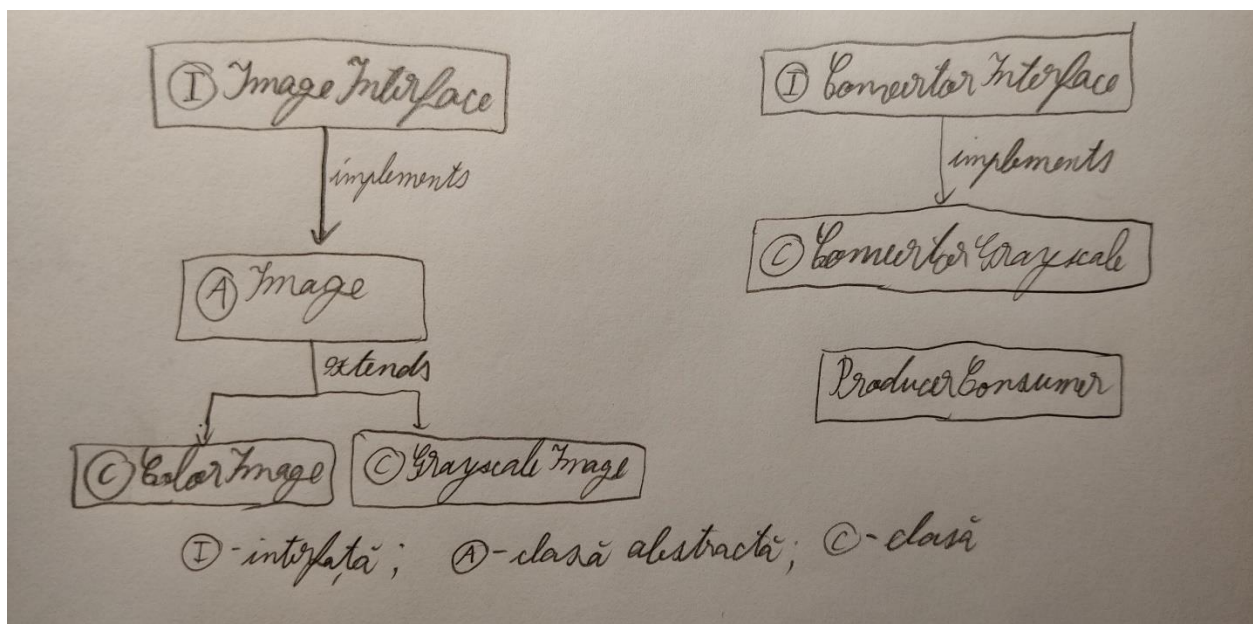 I ImageInterface
implements
A Image
extends
C ColorImage
C GrayscaleImage
I ConvertorInterface
implements
C ConvertorGrayscale
ProducerConsumer
I - interfață; A - clasă abstractă; C - clasă